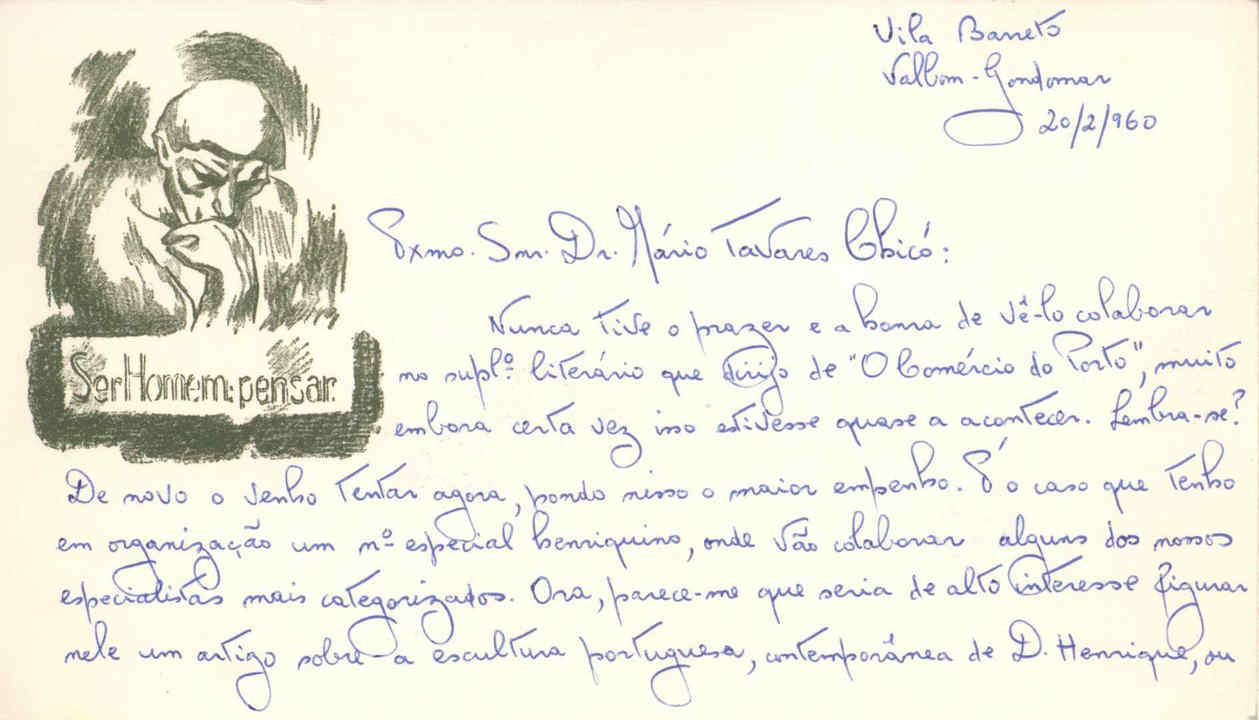 Vila Barreto
Valbom-Gondomar
20/2/960
Ser Homem: pensar.
Exmo. Snr. Dr. Mário Tavares Chicó:
Nunca tive o prazer e a honra de vê-lo colaborar
no supl.º literário que dirijo de "O Comércio do Porto", muito
embora certa vez isso estivesse quase a acontecer. Lembra-se?
De novo o venho tentar agora, pondo nisso o maior empenho. É o caso que tenho
em organização um nº especial henriquino, onde vão colaborar alguns dos nossos
especialistas mais categorizados. Ora, parece-me que seria de alto interesse figurar
nele um artigo sobre a escultura portuguesa, contemporânea de D. Henrique, ou